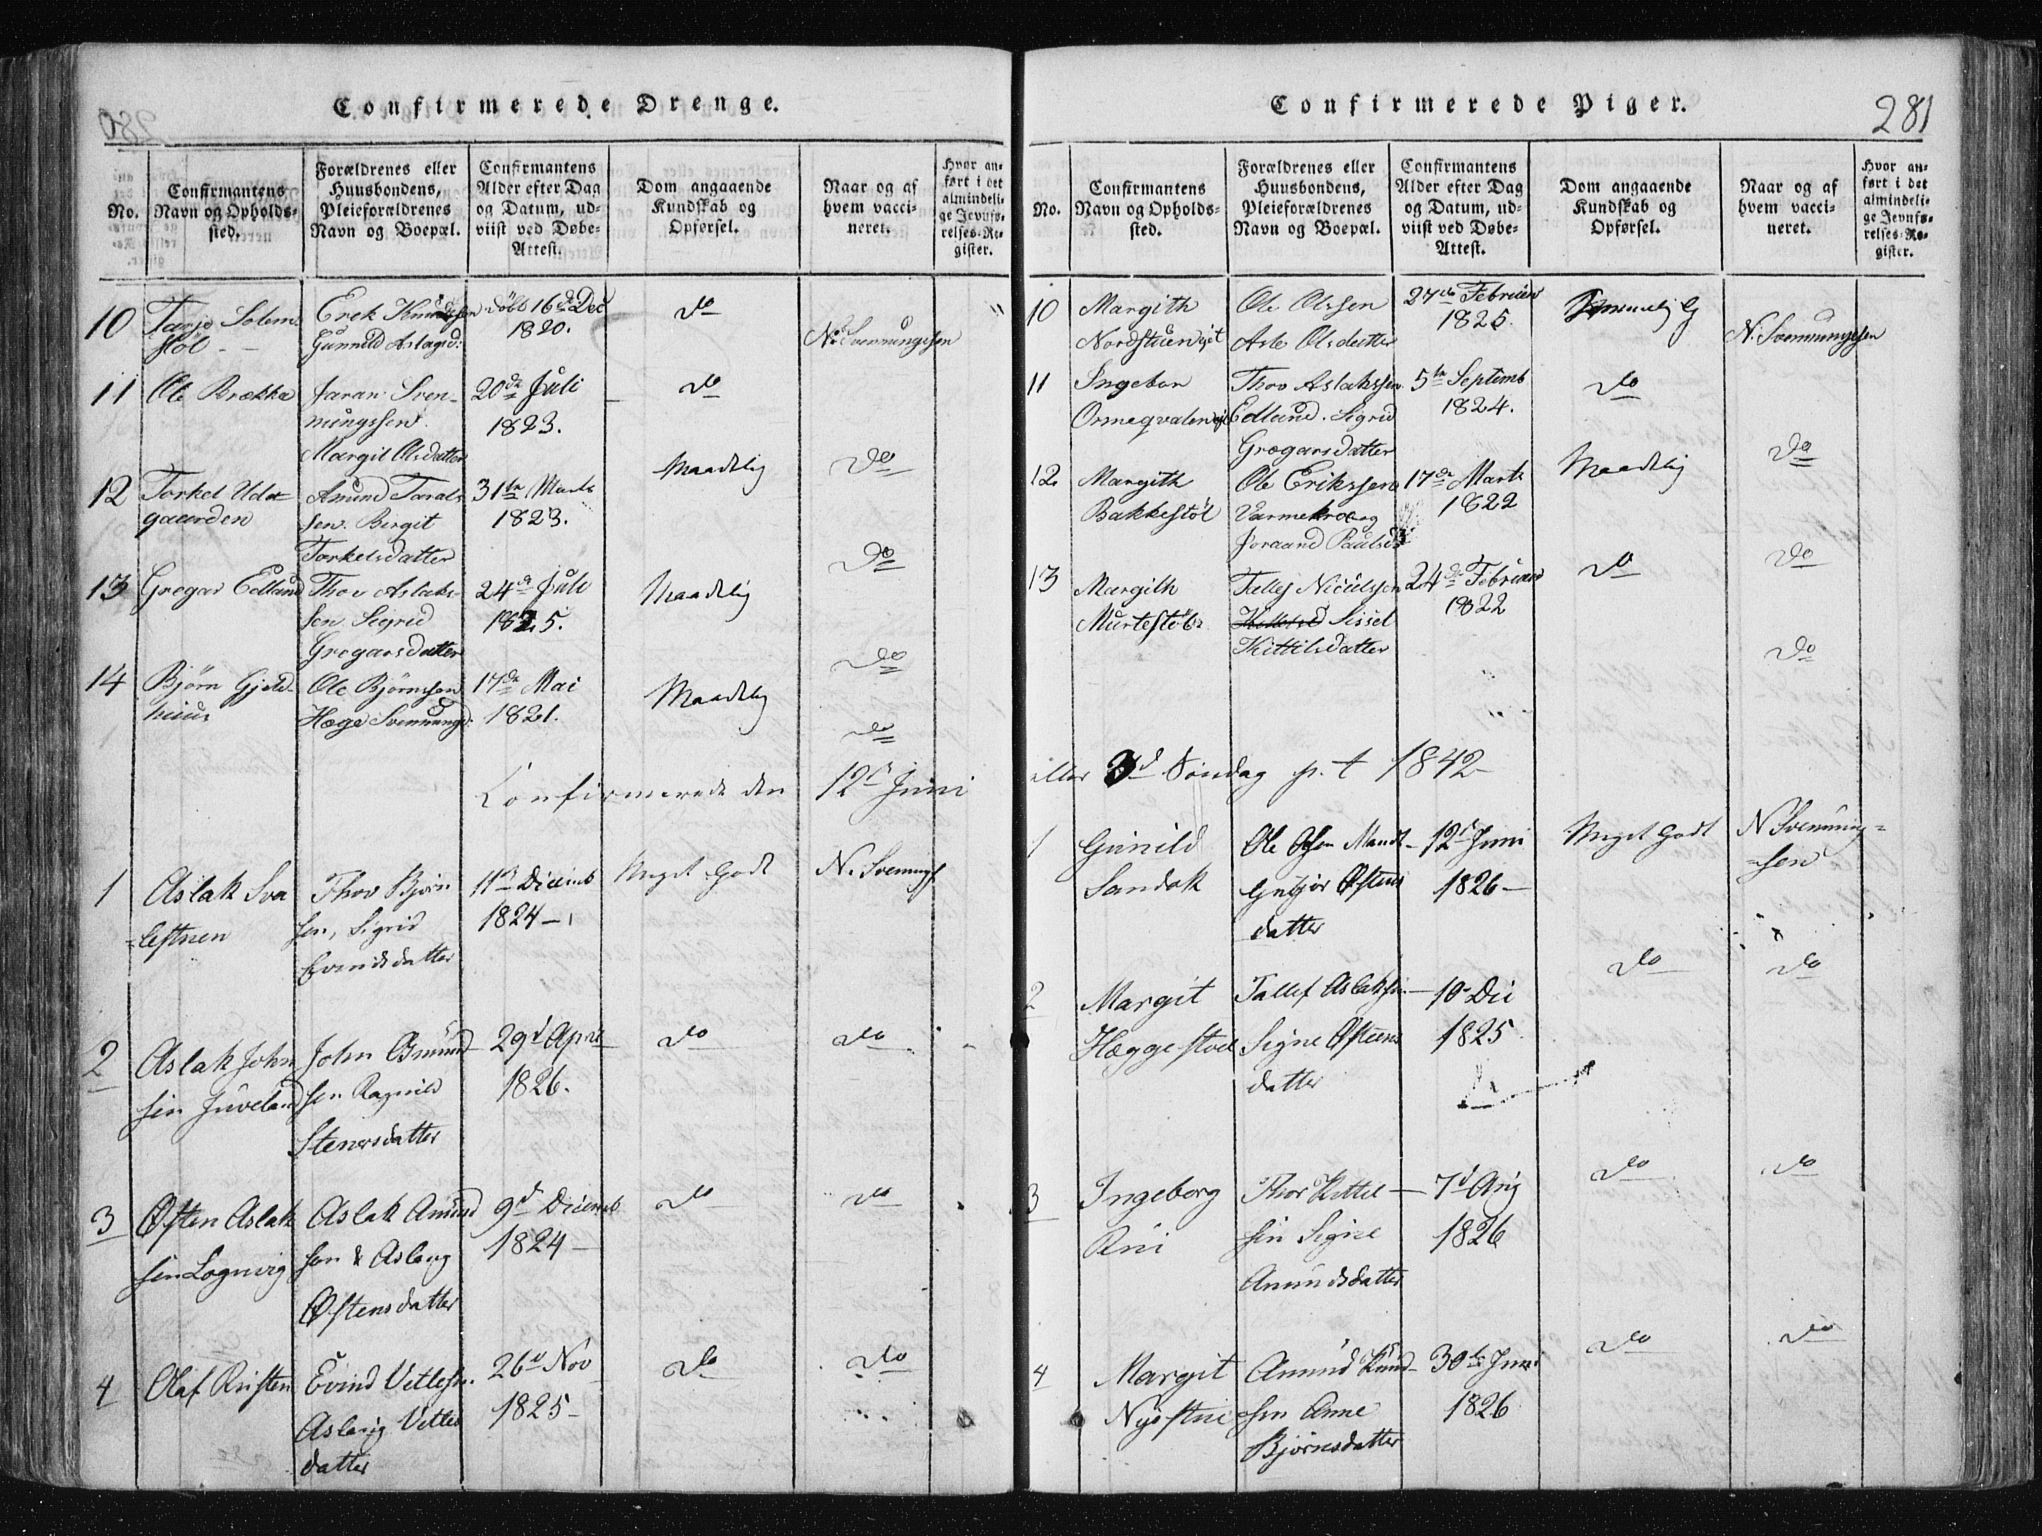 Confirmerede Drenge.
280
No.
Confirmantens
Navn og Opholds-
sted.
Forældrenes eller
Huusbondens,
Pleieforældrenes
Navn og Boepæl.
Confirmantens
Alder efter Dag
og Datum, ud-
viist ved Døbe-
Attest.
Dom angaaende
Kundskab og
Opførsel.
Naar og af
hvem vacci-
neret.
Hvor an-
ført i det
almindeli-
ge Jevnfø-
relses-Re-
gister.
10
Tarje Solem
støl
Erek Knudssen
Gunnild Aslagsd:
døbt 16de Dec
1820.
do
N. Svennungssen
11
Ole Brække
Jaran Sven-
nungssen.
Margit Olsdatter
20de Juli
1823.
do
do
12
Torkel Uda-
gaarden
Amund Taral-
sen. Birgit
Torkelsdatter
31te Marts
1823.
Maadelig
do
13
Gregar Edland
Thov Aslak-
sen. Sigrid
Gregarsdatter
24de Juli
1825.
Maadelig
do
14
Bjørn Gjeld-
huus
Ole Bjørnssen
Hæge Svennungd:
17de Mai
1821.
Maadelig
do
Confirmerede den 12te Juni
1
Aslak Sva
lestuen
Thov Bjørn
sen, Sigrid
Evindsdatter
11te Decemb
1824
Meget Godt
N. Svenningf
2
Aslak John
sen Juveland
John Osmund
sen Ragnild
Stenersdatter
29d April
1826.
do
do
3
Østen Aslak
sen Lognvig
Aslak Amund
sen & Aslaug
Østensdatter
9d Decemb
1824
do
do
4
Olaf Risten
Evind Vetlesn.
Aslaug Vetles
datter
26d Nov
1825
do
do
Confirmerede Piger.
281
No.
Confirmantens
Navn og Opholds-
sted.
Forældrenes eller
Huusbondens,
Pleieforældrenes
Navn og Boepæl.
Confirmantens
Alder efter Dag
og Datum, ud-
viist ved Døbe-
Attest.
Dom angaaende
Kundskab og
Opførsel.
Naar og af
hvem vacci-
neret.
Hvor an-
ført i det
almindeli-
ge Jevnfø-
relses-Re-
gister.
10
Margith
Nordstuen
Ole Olssen
Asle Olsdatter
27de Februar
1825.
N. Svennungssen
11
Ingebor
Thov Aslakssen
Edland. Sigrid
Gregarsdatter
5te Septemb
1824.
do
do
12
Margith
Bakkestøl
Ole Erikssen
Joraand Paulsd
17de Marts
1822
Maadelig
do
13
Margith
Murtestøl
Tellef Nieulssen
Sissel
Kittilsdatter
24de Februar
1822
do
do
eller 3d Søndag p. t 1842
1
Gunild
Sandok
Ole Olsen Mandt
Gunjør Østens
datter
12te Juni
1826
Meget Godt
N Svenning-
sen
2
Margit
Hæggestoel
Tallef Aslaksen
Signe Østens
datter
10 Dec
1825
do
do
3
Ingeborg
Rui
Thor Kittel
sen Signe
Amundsdatter
7d Aug
1826
do
do
4
Margit
Nystue
Amund Knud
sen Anne
Bjørnsdatter
30te Juni
1826
do
do